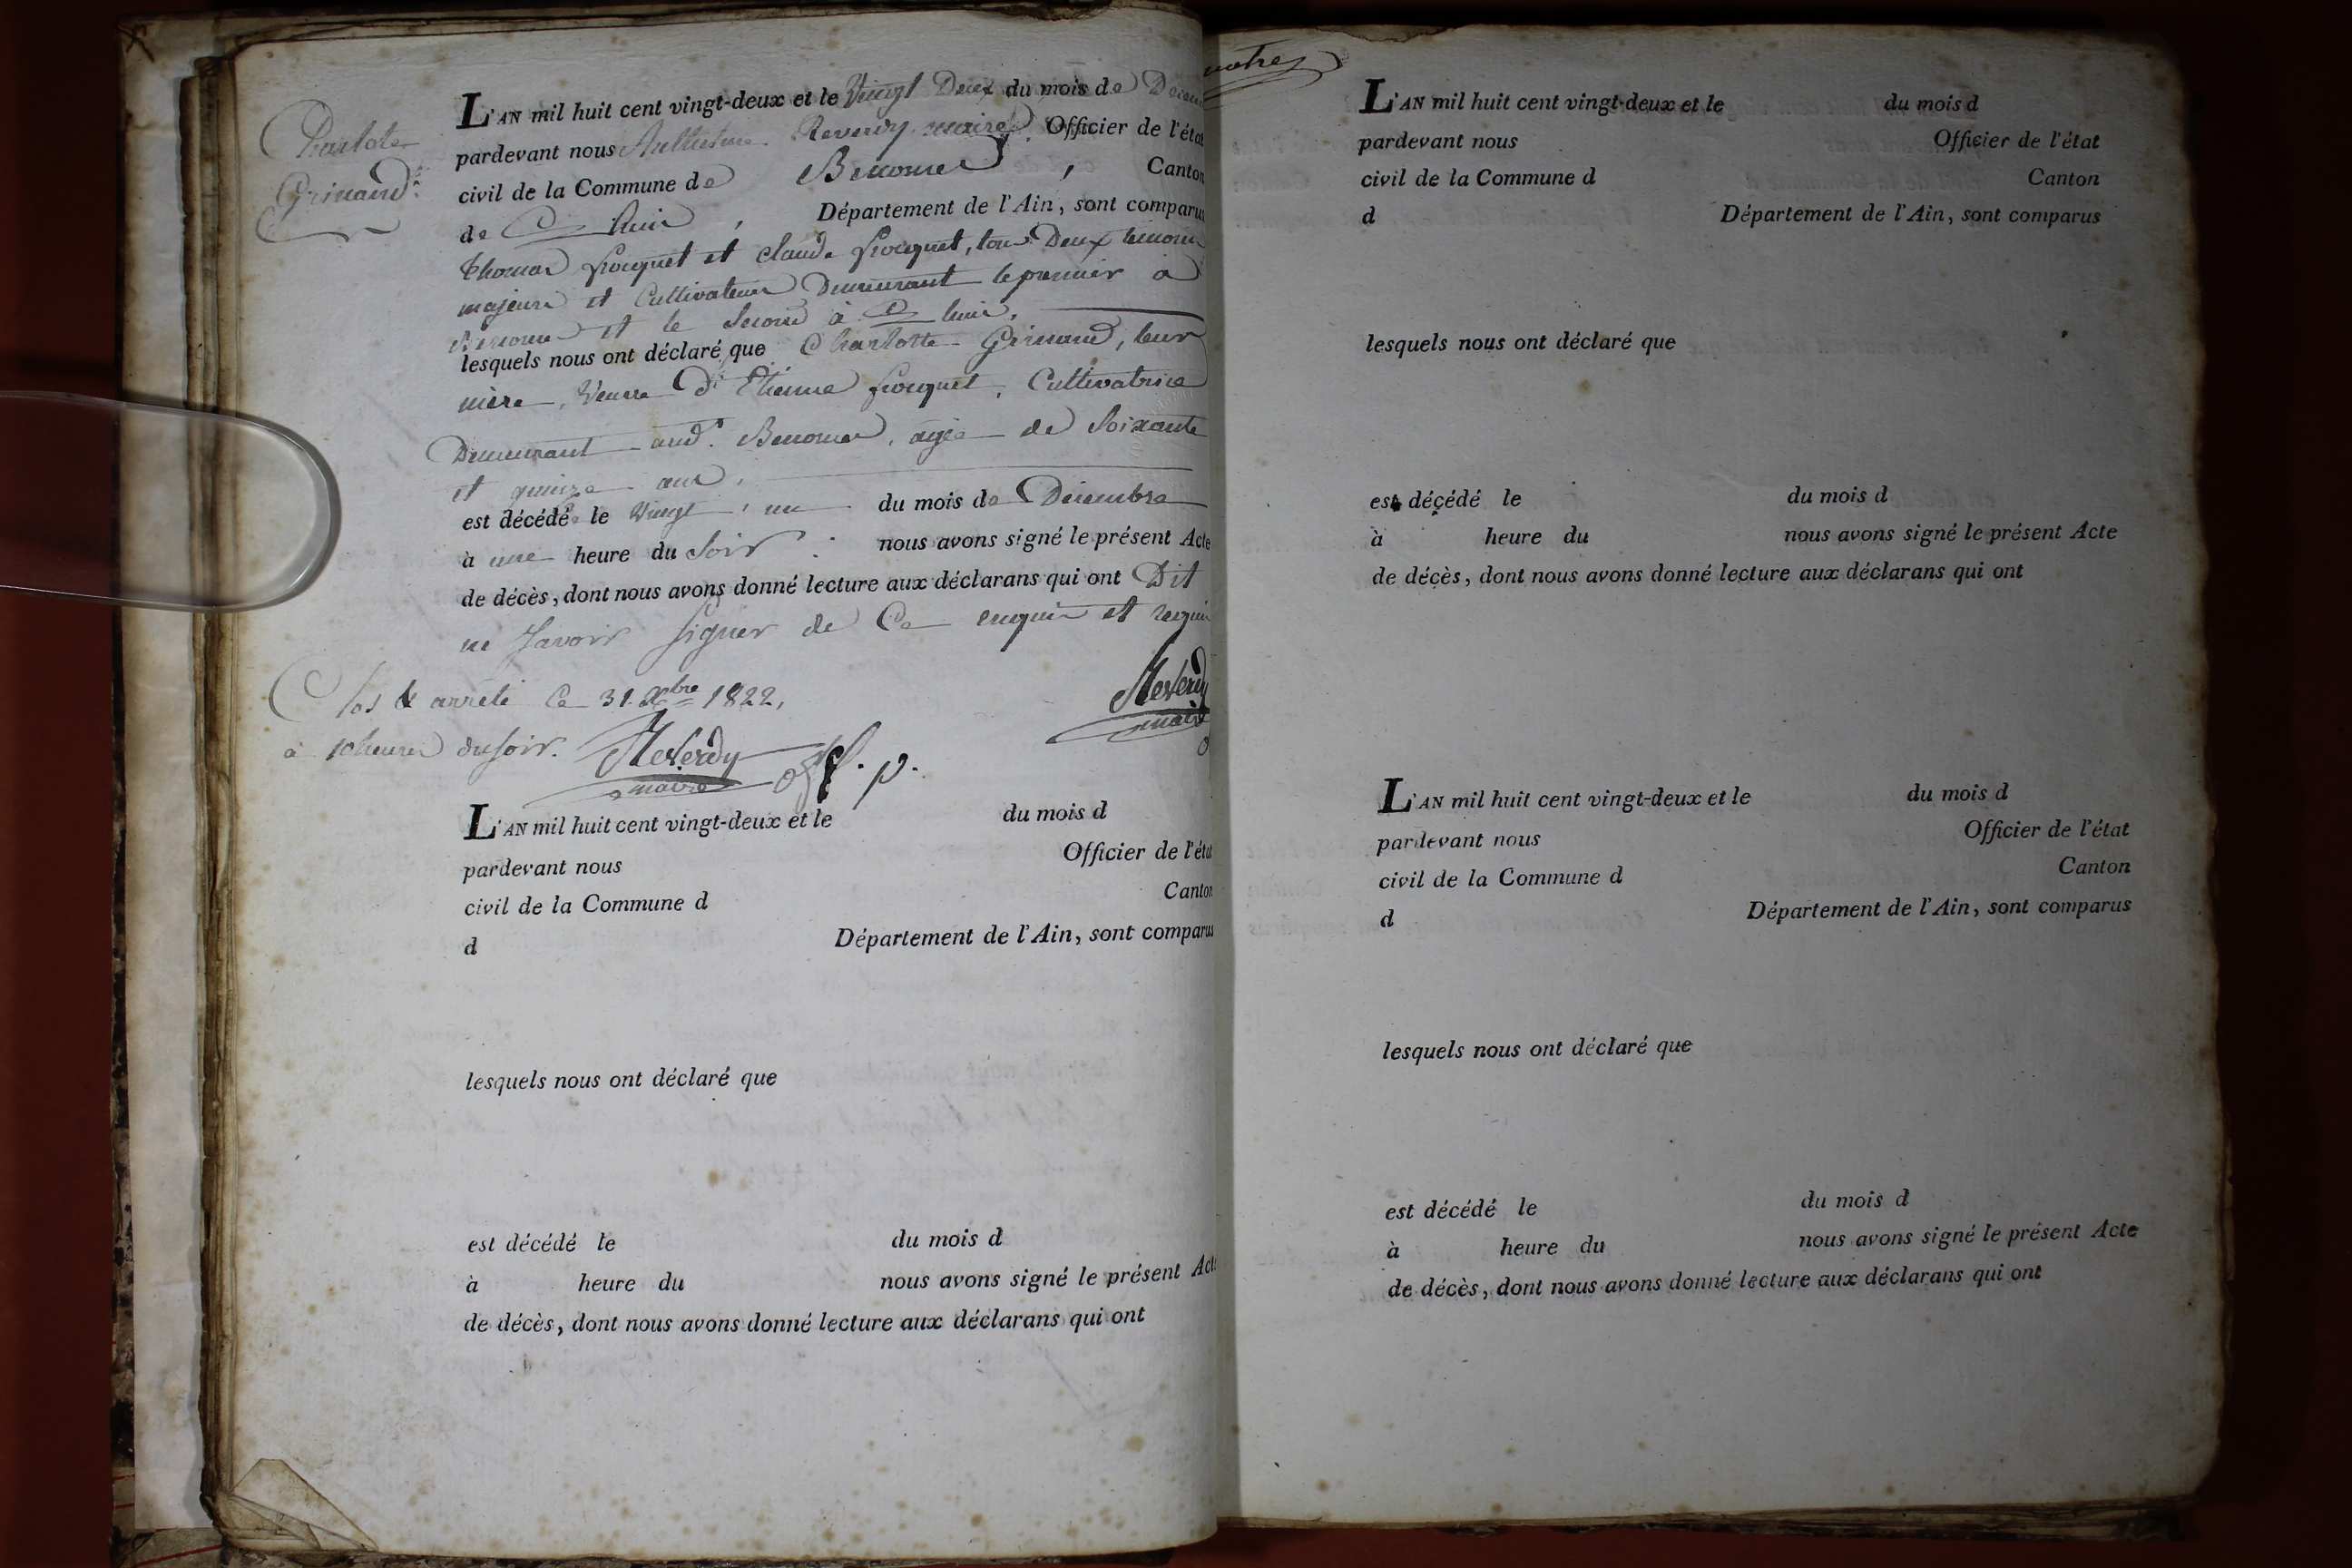 Charlote
Grimaud.
L'AN mil huit cent vingt-deux et le Vingt Deux du mois de
pardevant nous Reverdy maire Officier de l'état
civil de la Commune de Canton
de Département de l'Ain, sont comparus
Thomas foucquet et Claude foucquet, tous Deux
majeurs et Cultivateurs Demeurant le premier à
et le Second à
lesquels nous ont déclaré que Charlotte leur
mère, Veuve d'Etienne foucquet, Cultivatrice
Demeurant aud. agée de Soixante
et quinze ans,
est décédé le Vingt un du mois de Décembre
à une heure du Soir : nous avons signé le présent Acte
de décès, dont nous avons donné lecture aux déclarans qui ont Dit
ne Savoir Signer de Ce enquis et requis
Reverdy
maire
Clos & arrêté Ce 31. Xbre 1822,
à 10 heures du soir. Reverdy
maire
L'AN mil huit cent vingt-deux et le du mois d
pardevant nous Officier de l'état
civil de la Commune d Canton
d Département de l'Ain, sont comparus
lesquels nous ont déclaré que
est décédé le du mois d
à heure du nous avons signé le présent Acte
de décès, dont nous avons donné lecture aux déclarans qui ont
L'AN mil huit cent vingt-deux et le du mois d
pardevant nous Officier de l'état
civil de la Commune d Canton
d Département de l'Ain, sont comparus
lesquels nous ont déclaré que
est décédé le du mois d
à heure du nous avons signé le présent Acte
de décès, dont nous avons donné lecture aux déclarans qui ont
L'AN mil huit cent vingt-deux et le du mois d
pardevant nous Officier de l'état
civil de la Commune d Canton
d Département de l'Ain, sont comparus
lesquels nous ont déclaré que
est décédé le du mois d
à heure du nous avons signé le présent Acte
de décès, dont nous avons donné lecture aux déclarans qui ont